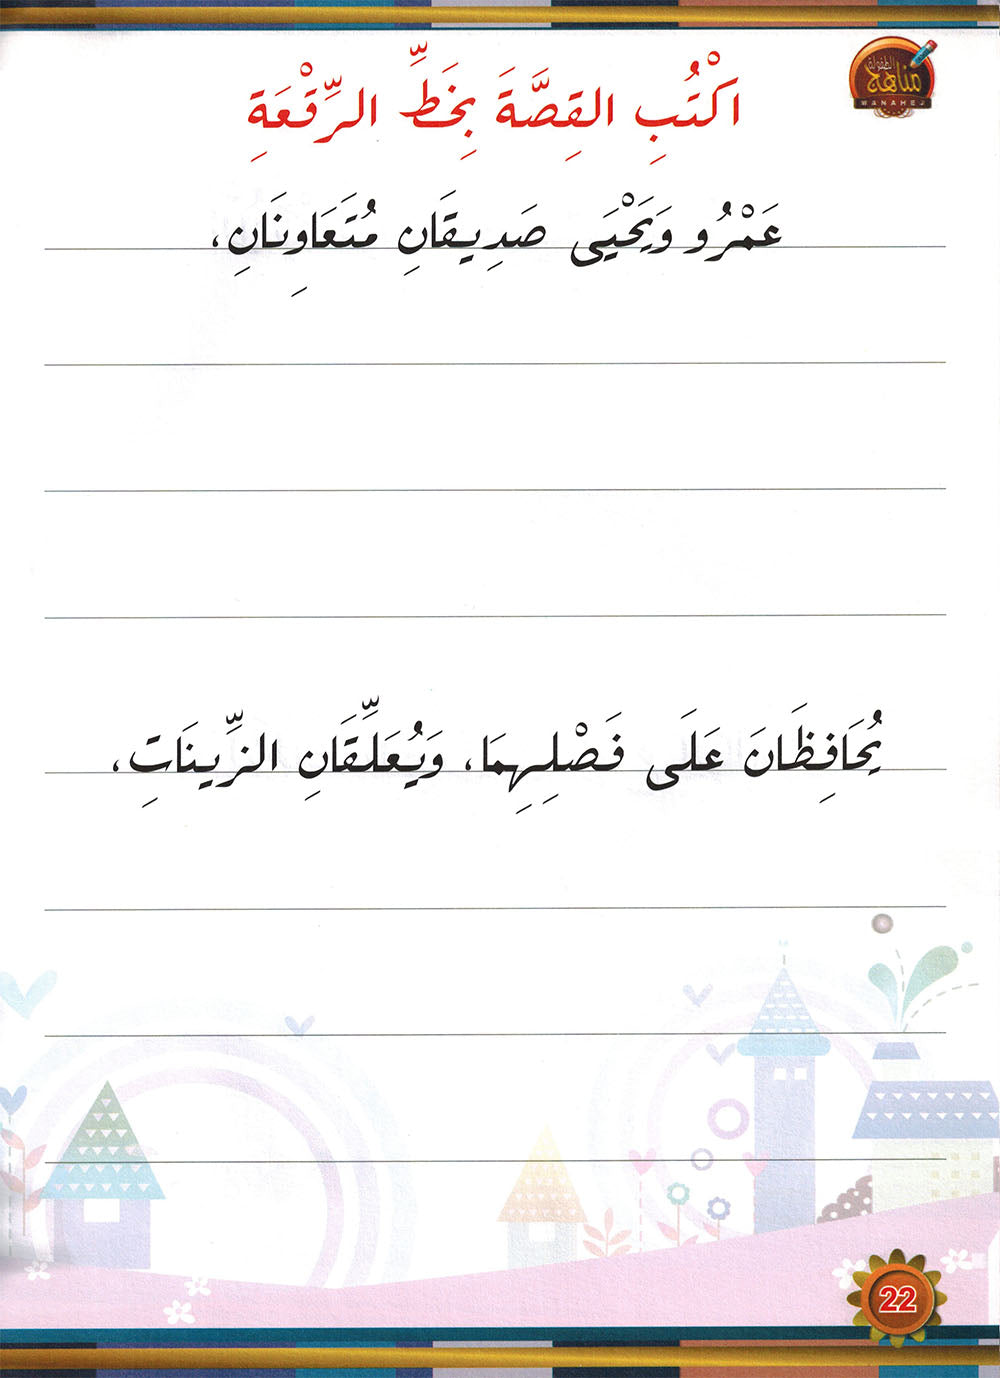 مناهج
الطفولة
MANAHEJ
اكْتُبِ القِصَّةَ بِخَطِّ الرِّقْعَةِ
عَمْرُو وَيَحْيَى صَدِيقَانِ مُتَعَاوِنَانِ،
يُحَافِظَانَ عَلَى فَصْلِهِمَا، وَيُعَلِّقَانِ الزِّينَاتِ،
22